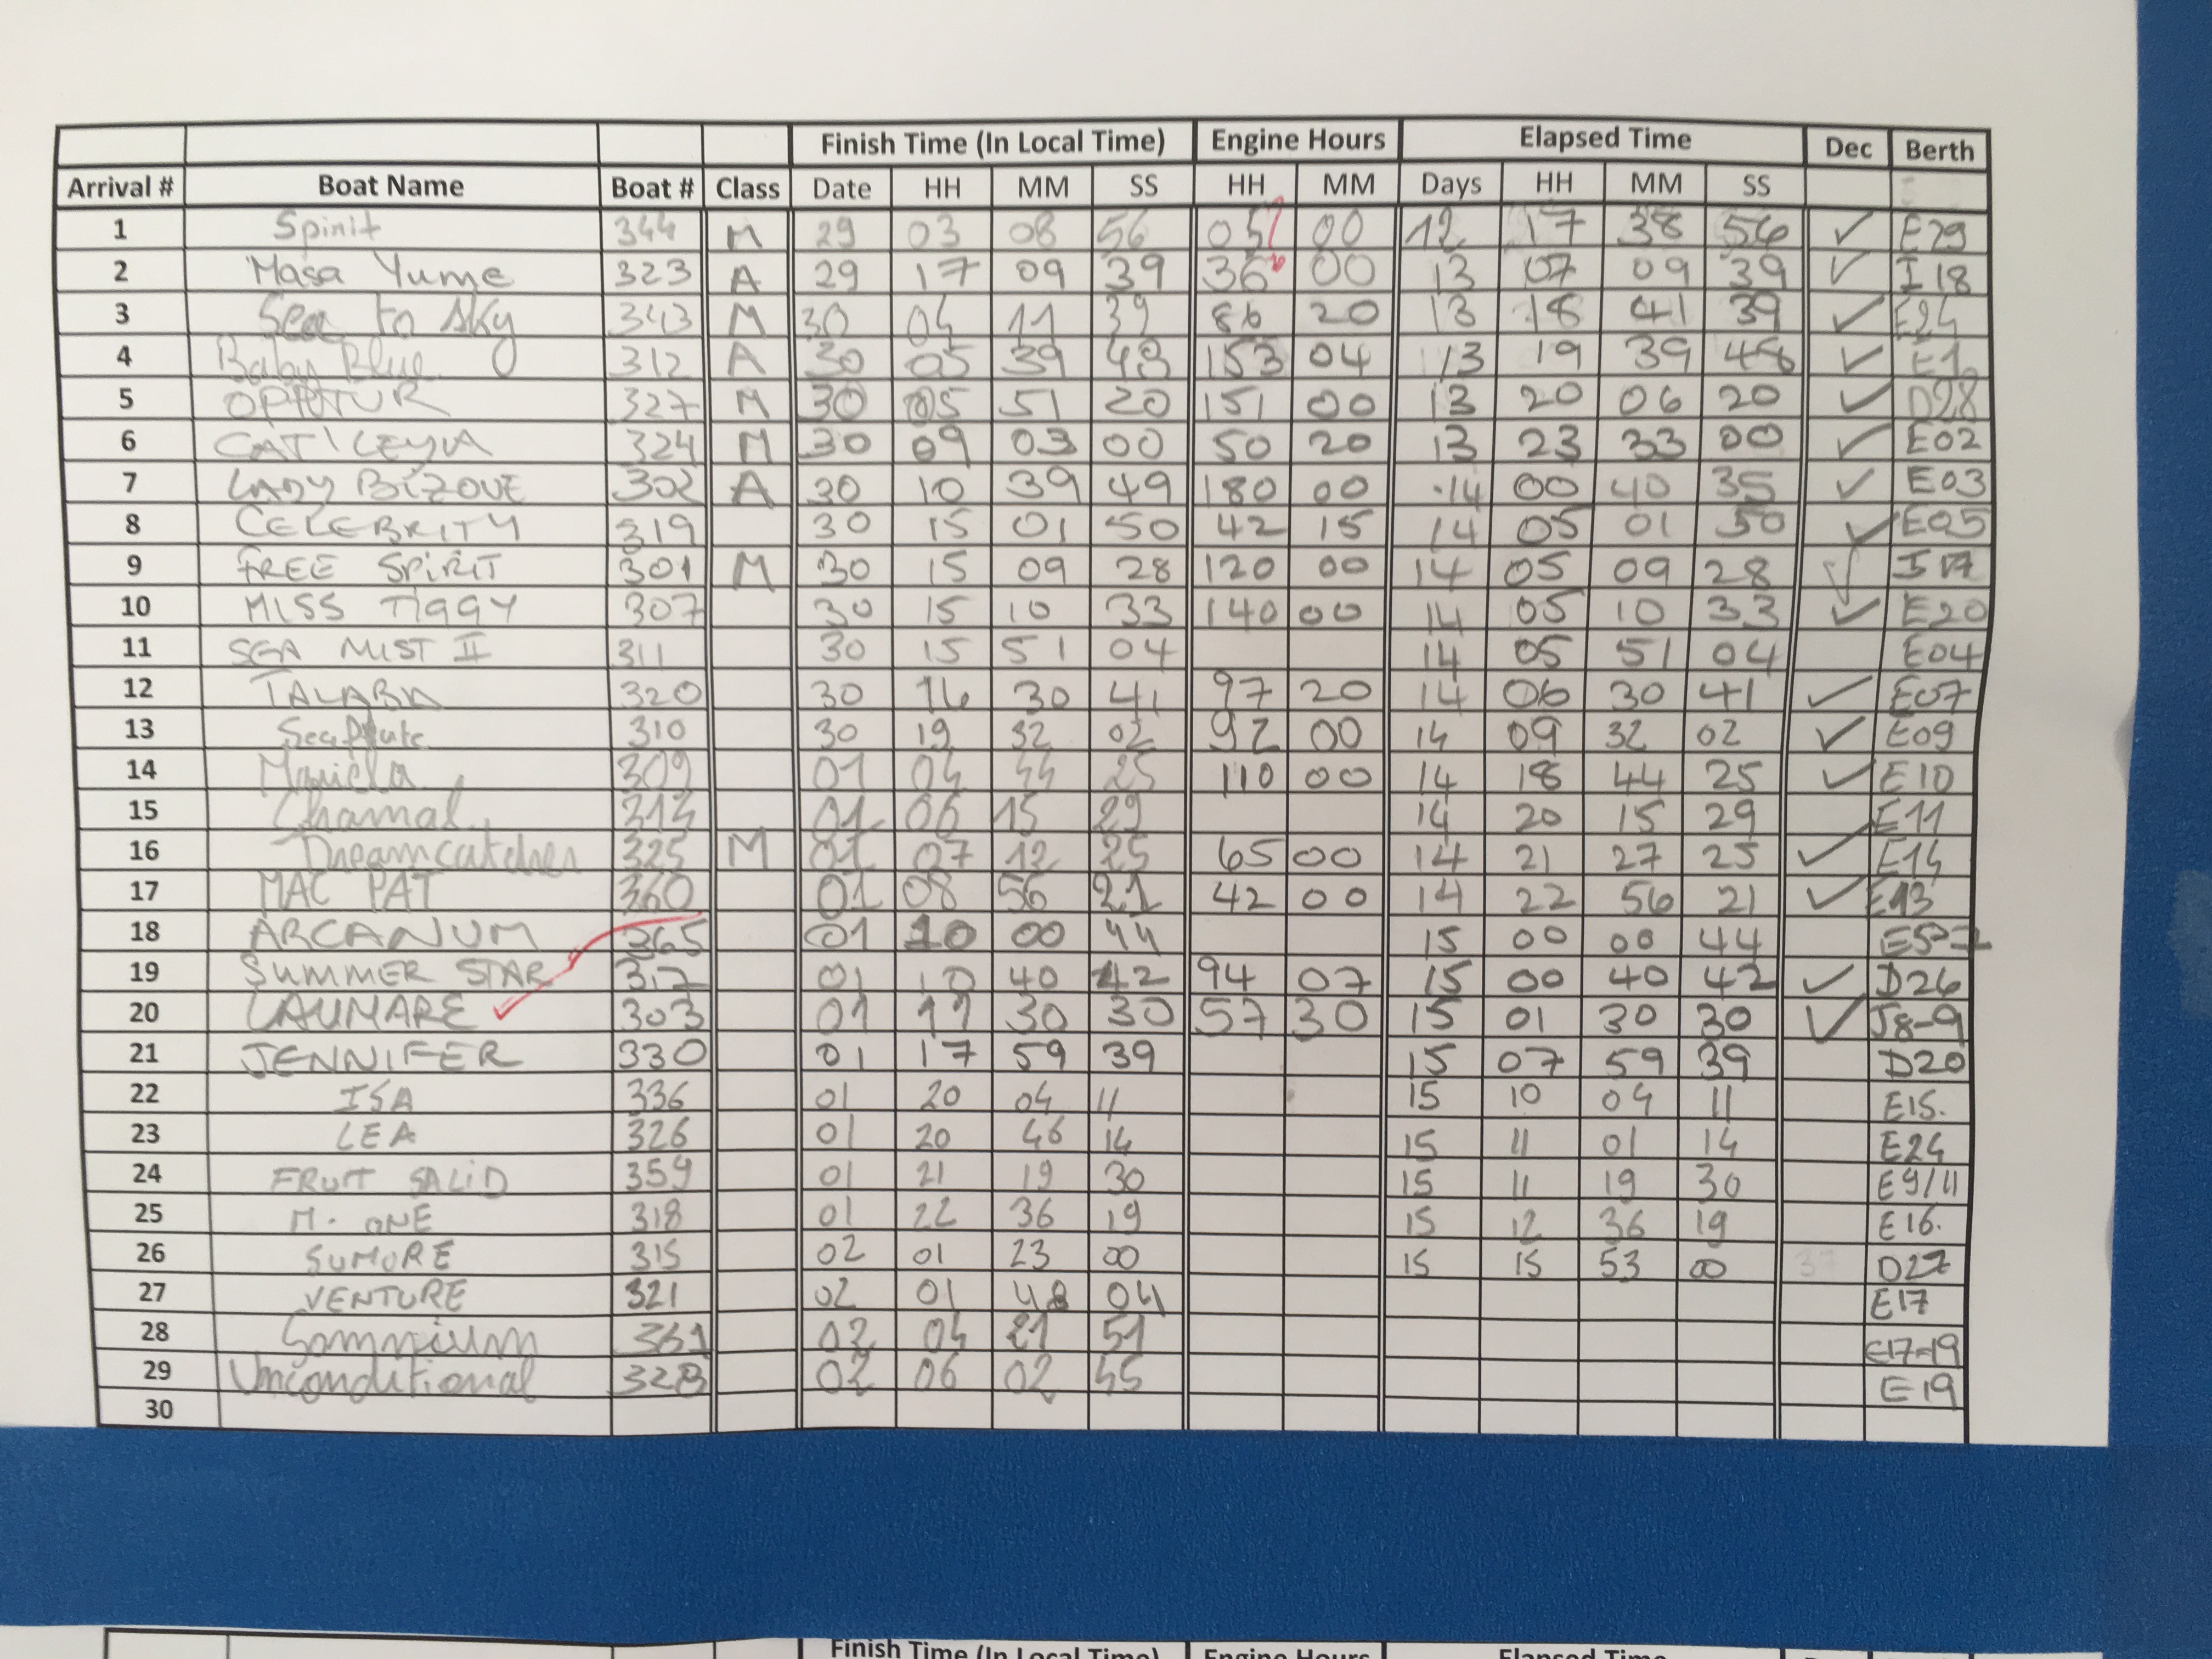 Finish Time (In Local Time) Engine Hours Elapsed Time Dec Berth
Arrival # Boat Name Boat # Class Date HH MM SS HH MM Days HH MM SS
1 Spirit 344 M 29 03 08 56 05 00 12 17 38 56 ✓ E29
2 Masa Yume 323 A 29 17 09 39 36 00 13 07 09 39 ✓ I18
3 Sea to Sky 343 M 30 04 11 39 86 20 13 18 41 39 ✓ E24
4 Baby Blue 312 A 30 05 39 48 153 04 13 19 39 48 ✓
5 327 M 30 05 51 20 151 00 13 20 06 20 ✓ D28
6 CATTLEYA 324 M 30 09 03 00 50 20 13 23 33 00 ✓ E02
7 LADY 302 A 30 10 39 49 180 00 14 00 40 35 ✓ E03
8 CELEBRITY 319 30 15 01 50 42 15 14 05 01 50 ✓ E05
9 FREE SPIRIT 301 M 30 15 09 28 120 00 14 05 09 28 ✓ I17
10 MISS TIGGY 307 30 15 10 33 140 00 14 05 10 33 ✓ E20
11 SEA MIST II 311 30 15 51 04 14 05 51 04 E04
12 TALABA 320 30 16 30 41 97 20 14 06 30 41 ✓ E07
13 310 30 19 32 02 92 00 14 09 32 02 ✓ E09
14 309 01 04 44 25 110 00 14 18 44 25 ✓ E10
15 Chamal 314 01 06 15 29 14 20 15 29 E11
16 Dreamcatcher 325 M 01 07 12 25 65 00 14 21 27 25 ✓ E14
17 MAC PAT 360 01 08 56 21 42 00 14 22 56 21 ✓ E13
18 ARCANUM 365 01 10 00 44 15 00 00 44
19 SUMMER STAR 317 01 10 40 42 94 07 15 00 40 42 ✓ D26
20 LAUMARE ✓ 303 01 11 30 30 57 30 15 01 30 30 ✓ J8-9
21 JENNIFER 330 01 17 59 39 15 07 59 39 D20
22 ISA 336 01 20 04 11 15 10 04 11 E15.
23 LEA 326 01 20 46 14 15 11 01 14 E24
24 FRUIT SALID 359 01 21 19 30 15 11 19 30 E9/11
25 M. ONE 318 01 22 36 19 15 12 36 19 E16.
26 SUMORE 315 02 01 23 00 15 15 53 00 D27
27 VENTURE 321 02 01 48 04 E17
28 Somnium 361 02 04 21 51 E17-19
29 Unconditional 328 02 06 02 45 E19
30
Finish Time (In Local Time) Engine Hours Elapsed Time